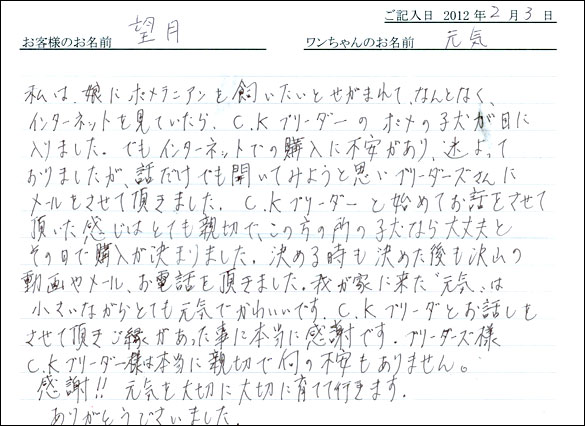 ご記入日 2012年2月3日
お客様のお名前 望月 ワンちゃんのお名前 元気
私は、娘にポメラニアンを飼いたいとせがまれて、なんとなく、
インターネットを見ていたら、C.Kブリーダーのポメの子犬が目に
入りました。でもインターネットでの購入に不安があり、迷よって
おりましたが、話だけでも聞いてみようと思いブリーダーズさんに
メールをさせて頂きました。C.Kブリーダーと始めてお話をさせて
頂いた感じはとても親切で、この方の所の子犬なら大丈夫と
その日で購入が決まりました。決める時も決めた後も沢山の
動画やメール、お電話を頂きました。我が家に来た"元気"は
小さいながらとても元気でかわいいです。C.Kブリーダとお話しを
させて頂きご縁があった事に本当に感謝です。ブリーダーズ様
C.Kブリーダー様は本当に親切で何の不安もありません。
感謝!! 元気を大切に大切に育てて行きます。
ありがとうございました。